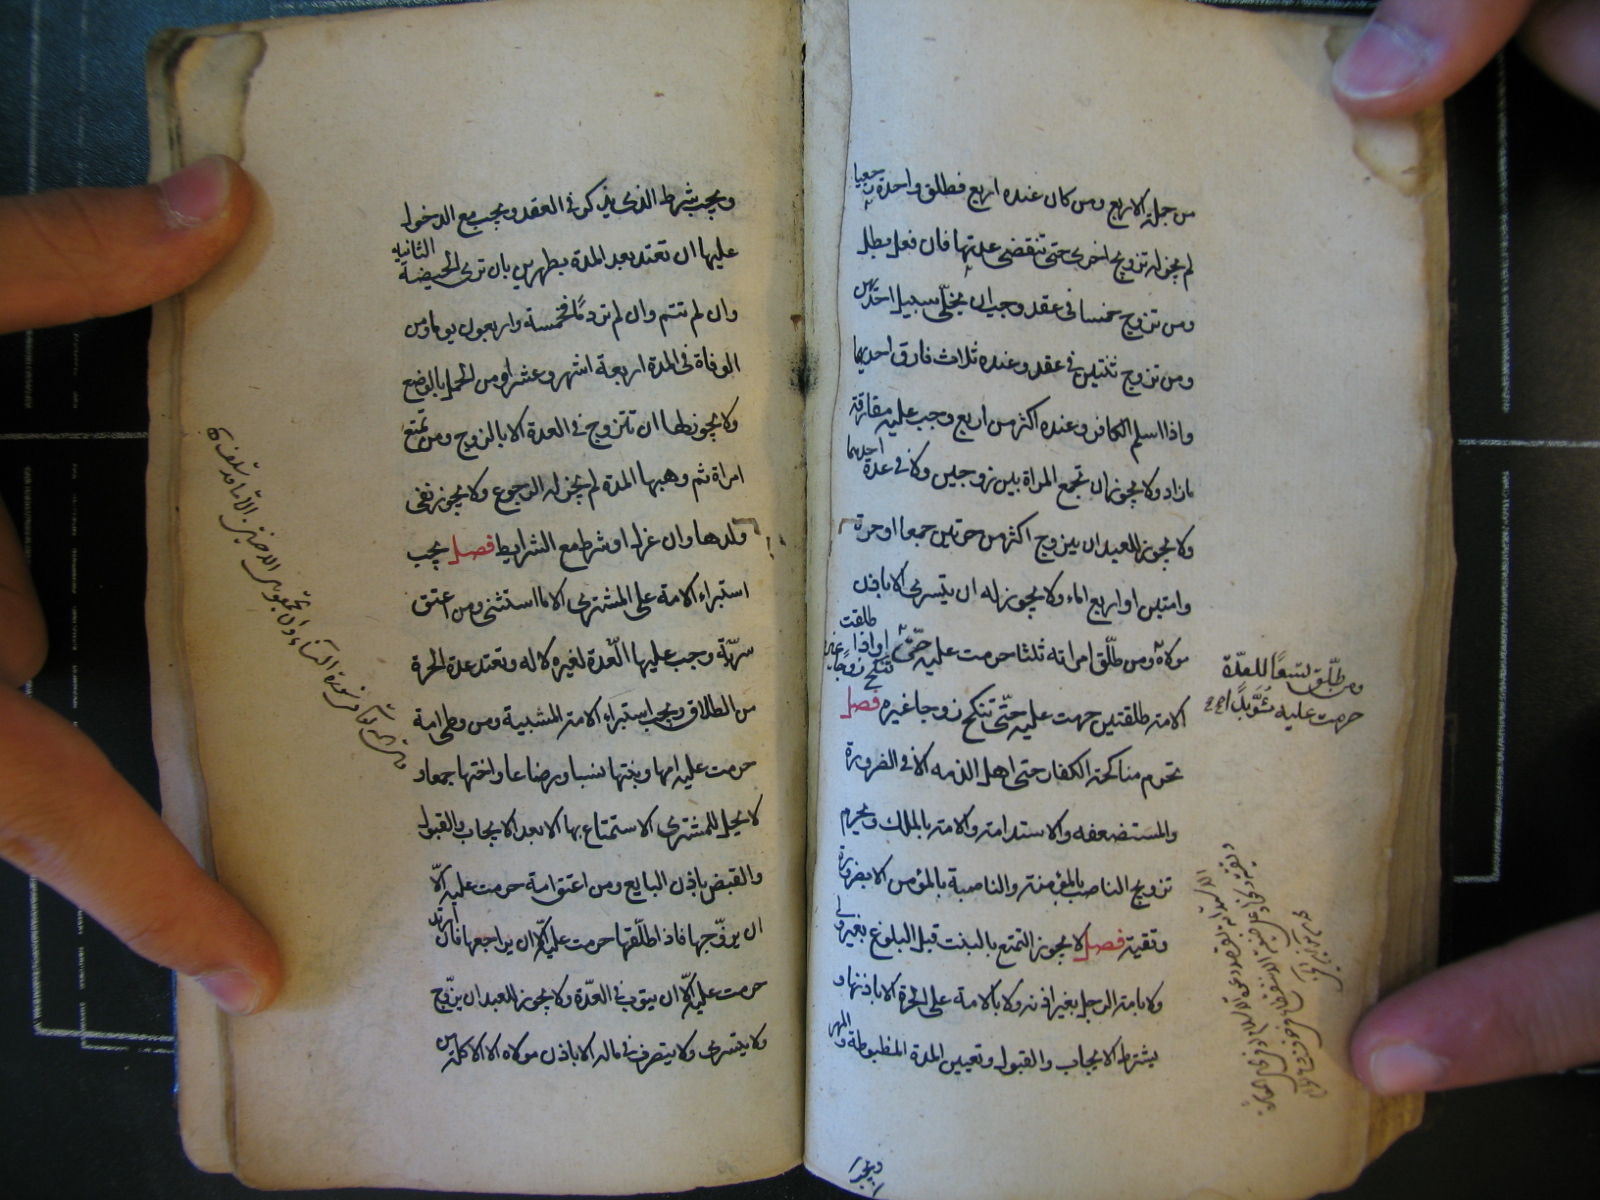 من جملة الاربع ومن كان عنده اربع فطلق واحدة رجعيا
لم يجز له تزويج اخرى حتى تنقضى عدتها فان فعل بطل
ومن تزوج خمسا فى عقد وجب ان يخلى سبيل احدهن
ومن تزوج ثنتين فى عقد وعنده ثلاث فارق احديهما
واذا اسلم الكافر وعنده اكثر من اربع وجب عليه مفارقة
مازاد ولا يجوز ان تجمع المراة بين زوجين ولا فى عدة احدهما
ولا يجوز للعبد ان يتزوج اكثر من حرتين جمعا او حرة
وامتين او اربع اماء ولا يجوز له ان يتسرى الا باذن
مولاه ومن طلق امراته ثلثا حرمت عليه حتى تنكح زوجا غيره واذا طلقت
الامة طلقتين حرمت عليه حتى تنكح زوجا غيره فصل
تحرم مناكحة الكفار حتى اهل الذمه الا فى الضرورة
والمستضعفه والاستدامة والامة بالملك ويحرم
تزويج الناصب بالمؤمنة والناصبة بالمؤمن الا بضرورة
وتقية فصل لا يجوز التمتع بالبنت قبل البلوغ بغير ولى
ولا بامة الرجل بغير اذنه ولا بالامة على الحرة الا باذنها و
يشترط الايجاب والقبول وتعيين المدة المظبوطة والمهر
ومن طلق تسعا للعدة
حرمت عليه مؤبدا
ويجب شرط الذى يذكر فى العقد ويجب مع الدخول
عليها ان تعتد بعد المدة بطهرين بان ترى الحيضة الثانية
وان لم تتم وان لم تر دما فخمسة واربعون يوما ومن
الوفاة فى المدة اربعة اشهر وعشرا ومن الحمل بالوضع
ولا يجوز لها ان تتزوج فى العدة الا بالزوج ومن تمتع
امراة ثم وهبها المدة لم يجز له الرجوع ولا يجوز نفى
ولدها وان عزل او شرط مع الشرايط فصل يجب
استبراء الامة على المشترى الا ما استثنى ومن اعتق
سريّة وجب عليها العدة لغيره لا له وتعتد عدة الحرة
من الطلاق ويجب استبراء الامة المسبية ومن وطى امة
حرمت عليه امها وبنتها نسبا ورضاعا واختها جمعا و
لا يحل للمشترى الاستمتاع بها الا بعد الايجاب والقبول
والقبض باذن البايع ومن اعتق امة حرمت عليه الّا
ان يزوّجها فاذا طلّقها حرمت عليه الّا ان يراجعها فان ارتد
حرمت عليه الّا ان يتوب فى العدّة ولا يجوز للعبد ان يزوّج
ولا يتسرى ولا يتصرف فى ماله الا باذن مولاه الا الاكل من